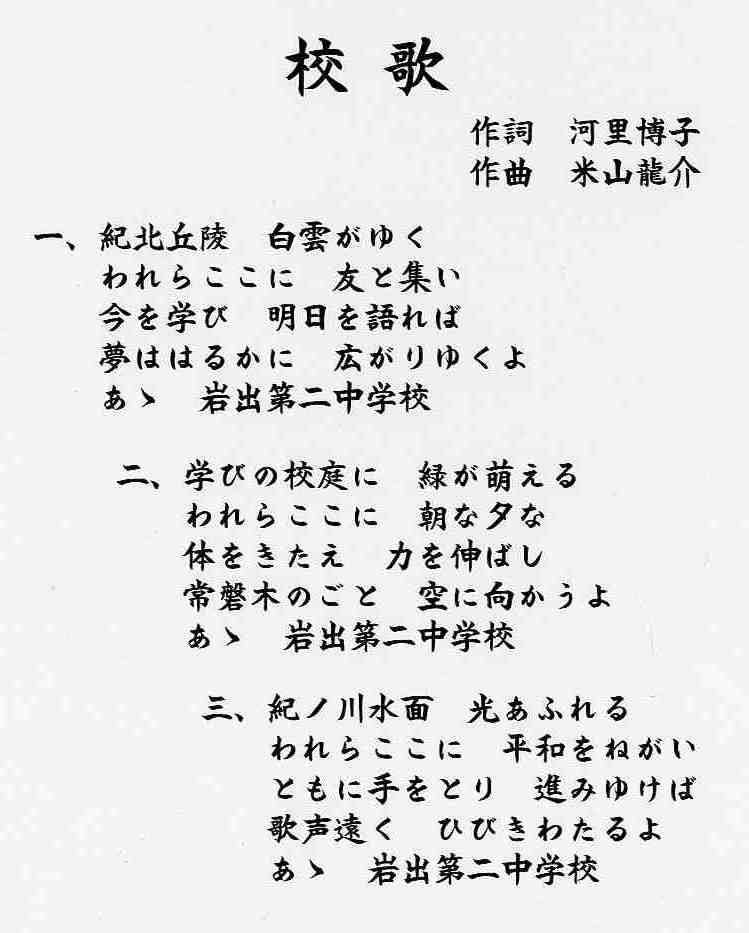 校歌
作詞　河里博子
作曲　米山龍介
一、紀北丘陵　白雲がゆく
われらここに　友と集い
今を学び　明日を語れば
夢ははるかに　広がりゆくよ
あゝ　岩出第二中学校
二、学びの校庭に　緑が萌える
われらここに　朝な夕な
体をきたえ　力を伸ばし
常磐木のごと　空に向かうよ
あゝ　岩出第二中学校
三、紀ノ川水面　光あふれる
われらここに　平和をねがい
ともに手をとり　進みゆけば
歌声遠く　ひびきわたるよ
あゝ　岩出第二中学校